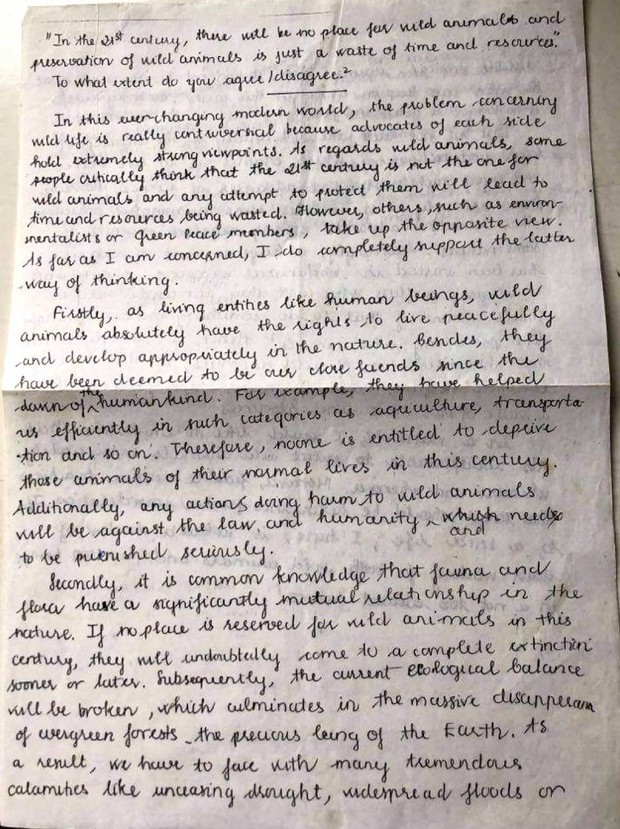 "In the 21st century, there will be no place for wild animals and
preservation of wild animals is just a waste of time and resources."
To what extent do you agree/disagree?
In this ever-changing modern world, the problem concerning
wild life is really controversial because advocates of each side
hold extremely strong viewpoints. As regards wild animals, some
people critically think that the 21st century is not the one for
wild animals and any attempt to protect them will lead to
time and resources being wasted. However, others, such as environ-
mentalists or Green Peace members, take up the opposite view.
As far as I am concerned, I do completely support the latter
way of thinking.
Firstly, as living entities like human beings, wild
animals absolutely have the rights to live peacefully
and develop appropriately in the nature. Besides, they
have been deemed to be our close friends since the
dawn of the humankind. For example, they have helped
us efficiently in such categories as aquculture, transporta-
tion and so on. Therefore, noone is entitled to deprive
those animals of their normal lives in this century.
Additionally, any actions doing harm to wild animals
will be against the law and humanity, and needs
to be punished seriously.
Secondly, it is common knowledge that fauna and
flora have a significantly mutual relationship in the
nature. If no place is reserved for wild animals in this
century, they will undoubtally come to a complete extinction
sooner or later. Subsequently, the current ecological balance
will be broken, which culminates in the massive disappearan
of evergreen forests, the precious lung of the Earth. As
a result, we have to face with many tremendous
calamities like unceasing drought, widespread floods or